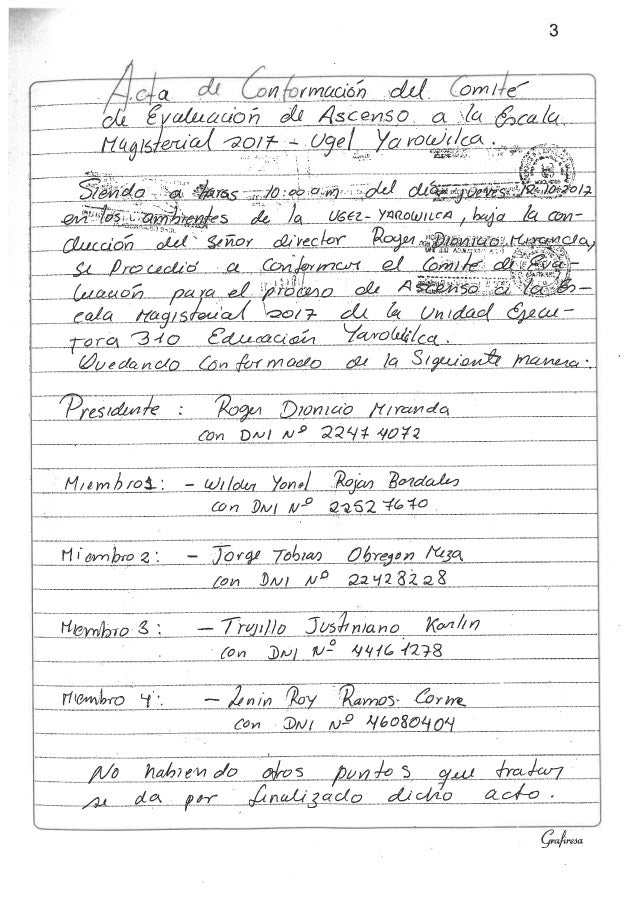 3
Acta de Conformación del Comité
de Evaluación de Ascenso a la Escala
Magisterial 2017 - Ugel Yarowilca.
Siendo a horas 10:00 a.m. del día jueves 12-10-2017
en los ambientes de la UGEL-YAROWILCA, bajo la con-
ducción del Señor director Roger Dionicio Miranda,
se Procedió a conformar el Comité de Eva-
luación para el proceso de Ascenso a la Es-
cala Magisterial 2017 de la Unidad Ejecu-
tora 310 Educación Yarowilca.
Quedando Conformado de la Siguiente manera:
Presidente : Roger Dionicio Miranda
con DNI Nº 22474072
Miembro 1: - Wilder Yonel Rojas Bordales
con DNI Nº 22527670
Miembro 2: - Jorge Tobias Obregon Meza
con DNI Nº 22428228
Miembro 3: - Trujillo Justiniano Karlin
con DNI Nº 44161278
Miembro 4: - Lenin Roy Ramos
con DNI Nº 46080404
No habiendo otros puntos que tratar
se da por finalizado dicho acto.
Grafiresa